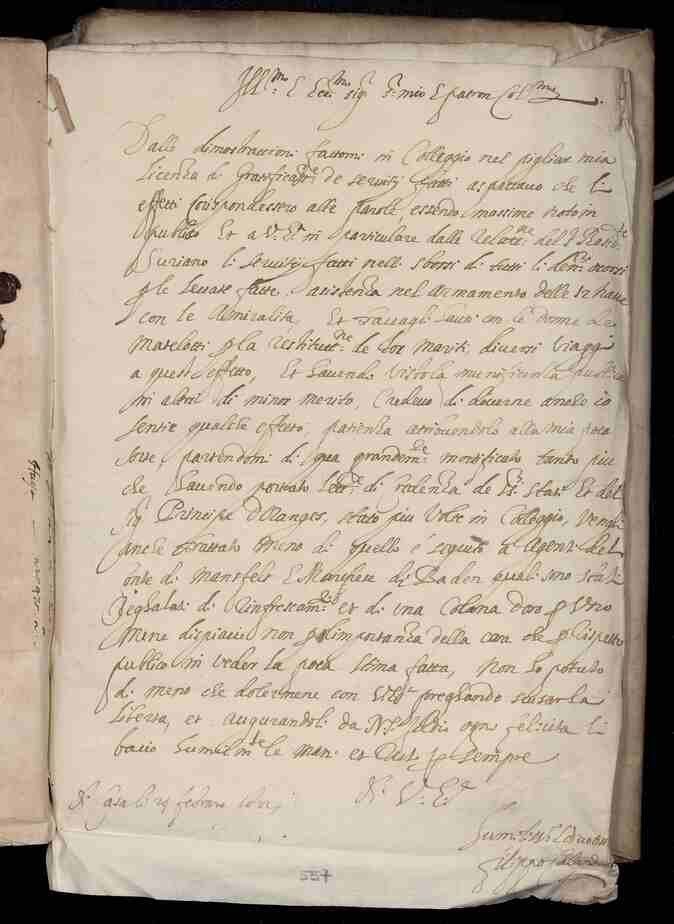 Ill.mo E Ecc.mo sig.r S.r mio E patron Col.mo
Dalle dimostrationi fattomi in Colleggio nel pigliar mia
licenza di Gratificat.ne de servitij fatti aspettavo che li
effetti corispondessero alle parole, essendo massime noto in
publico Et a V.E. in particulare dalle relat.ni del
Suriano li servitij fatti nelli sborsi di tutti li den.ri
p le levate fatte, asistenza nel armamento delle 12 Nave
con le Amiralità, Et travagli hauti con le donne de
Mateloti p la restitut.ne de lor mariti, diversi viaggi
a quest effetto, Et havendo vista la munificenza publica
in altri di minor merito, Credevo di doverne anche io
sentir qualche effetto, patienza atribuendolo alla mia poca
sorte, partendomi di qua grandem.te mortificato tanto piu
che havendo portato lettere di credenza de SS.ri Stati Et del
Principe d'Oranges, stato piu volte in Colleggio, vengo
anche trattato meno di quello è seguito a Agenti del
Conte di Mansfelt E Marchese di Baden quali sono stati
Reghalati di Rinfrescam.ti et di una Colana d'oro p uno
Mene dispiacie non p limportanza della cosa che p rispetto
publico in veder la poca stima fatta, Non ho potuto
di meno che dolermene con V.E. preghando scusar la
liberta, et augurandoli da N.S. Idio ogni felicita li
bacio humilm.te le mani et Rest. p sempre
Di V.E.
Di Casa li 24 febraro
Humiliss.o E Devotiss.o
Filippo
557